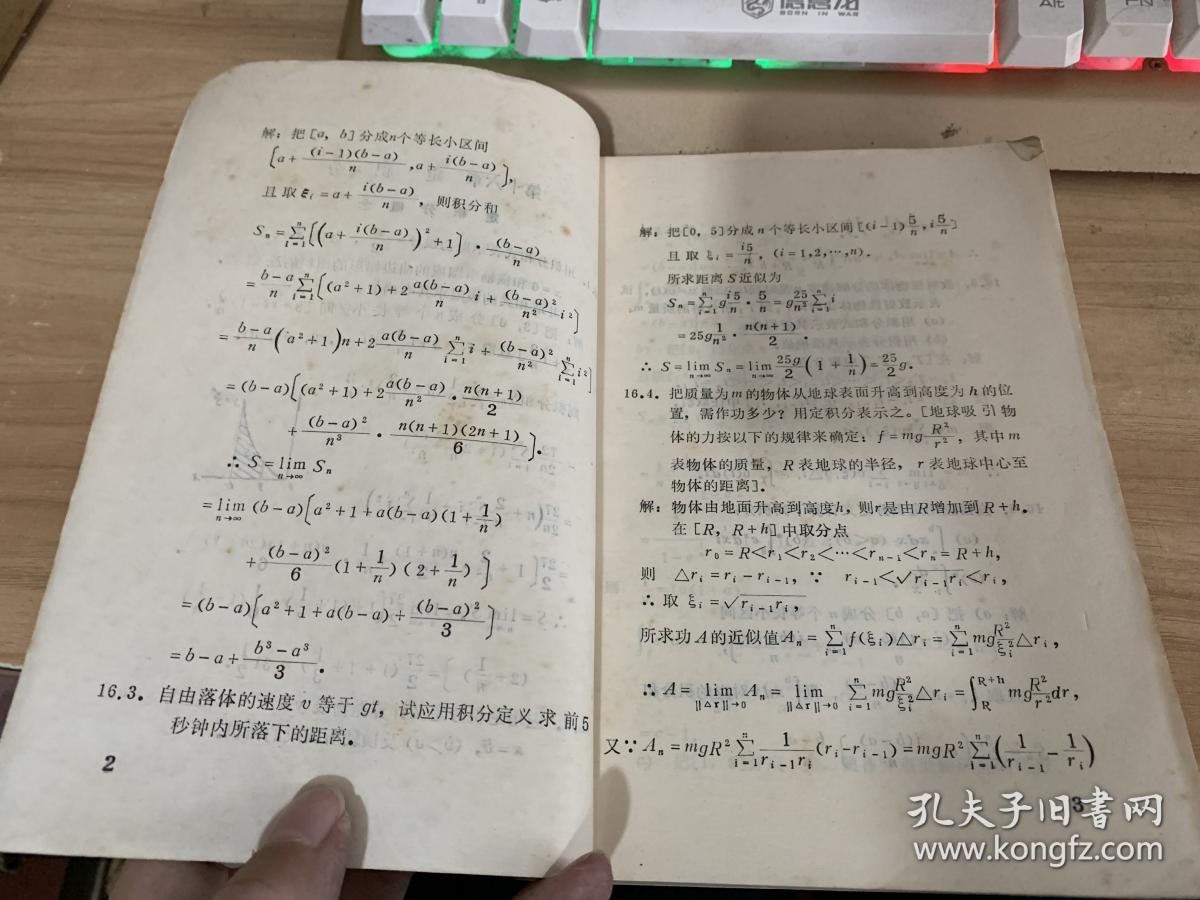 Alt
FN
BORN IN WAR
解：把[a, b]分成n个等长小区间
[a+(i-1)(b-a)/n, a+i(b-a)/n],
且取ξi=a+i(b-a)/n, 则积分和
Sn=∑_{i=1}^{n}[(a+i(b-a)/n)²+1]·(b-a)/n
=(b-a)/n ∑_{i=1}^{n}[(a²+1)+2 a(b-a)/n i+(b-a)²/n² i²]
=(b-a)/n (a²+1)n+2 a(b-a)/n ∑_{i=1}^{n} i+(b-a)²/n² ∑_{i=1}^{n} i²]
=(b-a)[(a²+1)+2 a(b-a)/n²·n(n+1)/2
+(b-a)²/n³·n(n+1)(2n+1)/6].
∴S=lim_{n→∞} Sn
=lim_{n→∞}(b-a)[a²+1+a(b-a)(1+1/n)
+(b-a)²/6 (1+1/n)(2+1/n)]
=(b-a)[a²+1+a(b-a)+(b-a)²/3]
=b-a+(b³-a³)/3.
16.3. 自由落体的速度υ等于gt, 试应用积分定义求前5
秒钟内所落下的距离。
2
解：把[0, 5]分成n个等长小区间[(i-1)5/n, i5/n]
且取ξi=i5/n, (i=1,2,…,n).
所求距离S近似为
Sn=∑_{i=1}^{n} g i5/n·5/n=g 25/n² ∑_{i=1}^{n} i
=25g 1/n²·n(n+1)/2.
∴S=lim_{n→∞} Sn=lim_{n→∞} 25g/2 (1+1/n)=25/2 g.
16.4. 把质量为m的物体从地球表面升高到高度为h的位
置, 需作功多少? 用定积分表示之。[地球吸引物
体的力按以下的规律来确定: f=mg R²/r², 其中m
表物体的质量, R表地球的半径, r表地球中心至
物体的距离].
解：物体由地面升高到高度h, 则r是由R增加到R+h.
在[R, R+h]中取分点
r₀=R<r₁<r₂<…<r_{n-1}<r_n=R+h,
则 △ri=ri-r_{i-1}, ∵ r_{i-1}<√(r_{i-1}ri)<ri,
∴取ξi=√(r_{i-1}ri),
所求功A的近似值An=∑_{i=1}^{n} f(ξi)△ri=∑_{i=1}^{n} mg R²/ξi² △ri,
∴A=lim_{‖△r‖→0} An=lim_{‖△r‖→0} ∑_{i=1}^{n} mg R²/ξi² △ri=∫_{R}^{R+h} mg R²/r² dr,
又∵An=mgR² ∑_{i=1}^{n} 1/(r_{i-1}ri) (ri-r_{i-1})=mgR² ∑_{i=1}^{n}(1/r_{i-1}-1/ri)
3
孔夫子旧书网
www.kongfz.com